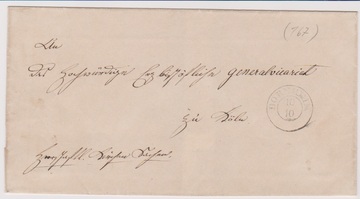 (767)
An
das Hochwürdige Erzbischöfliche Generalvicariat
zu Köln
Kirchen Sachen.